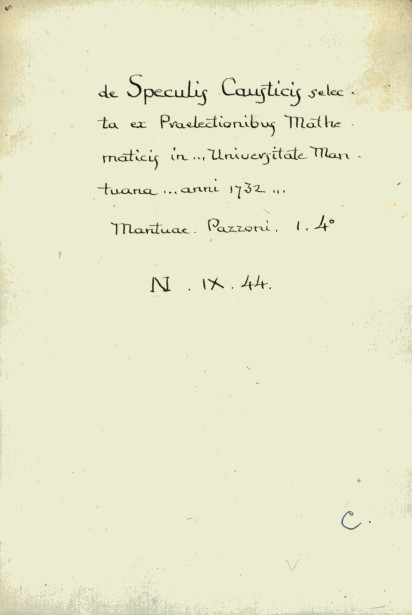 de Speculis Causticis selec-
ta ex Praelectionibus Mathe-
maticis in ... Universitate Man-
tuana ... anni 1732 ...
Mantuae. Pazzoni. 1. 4°
N. IX. 44.
C.